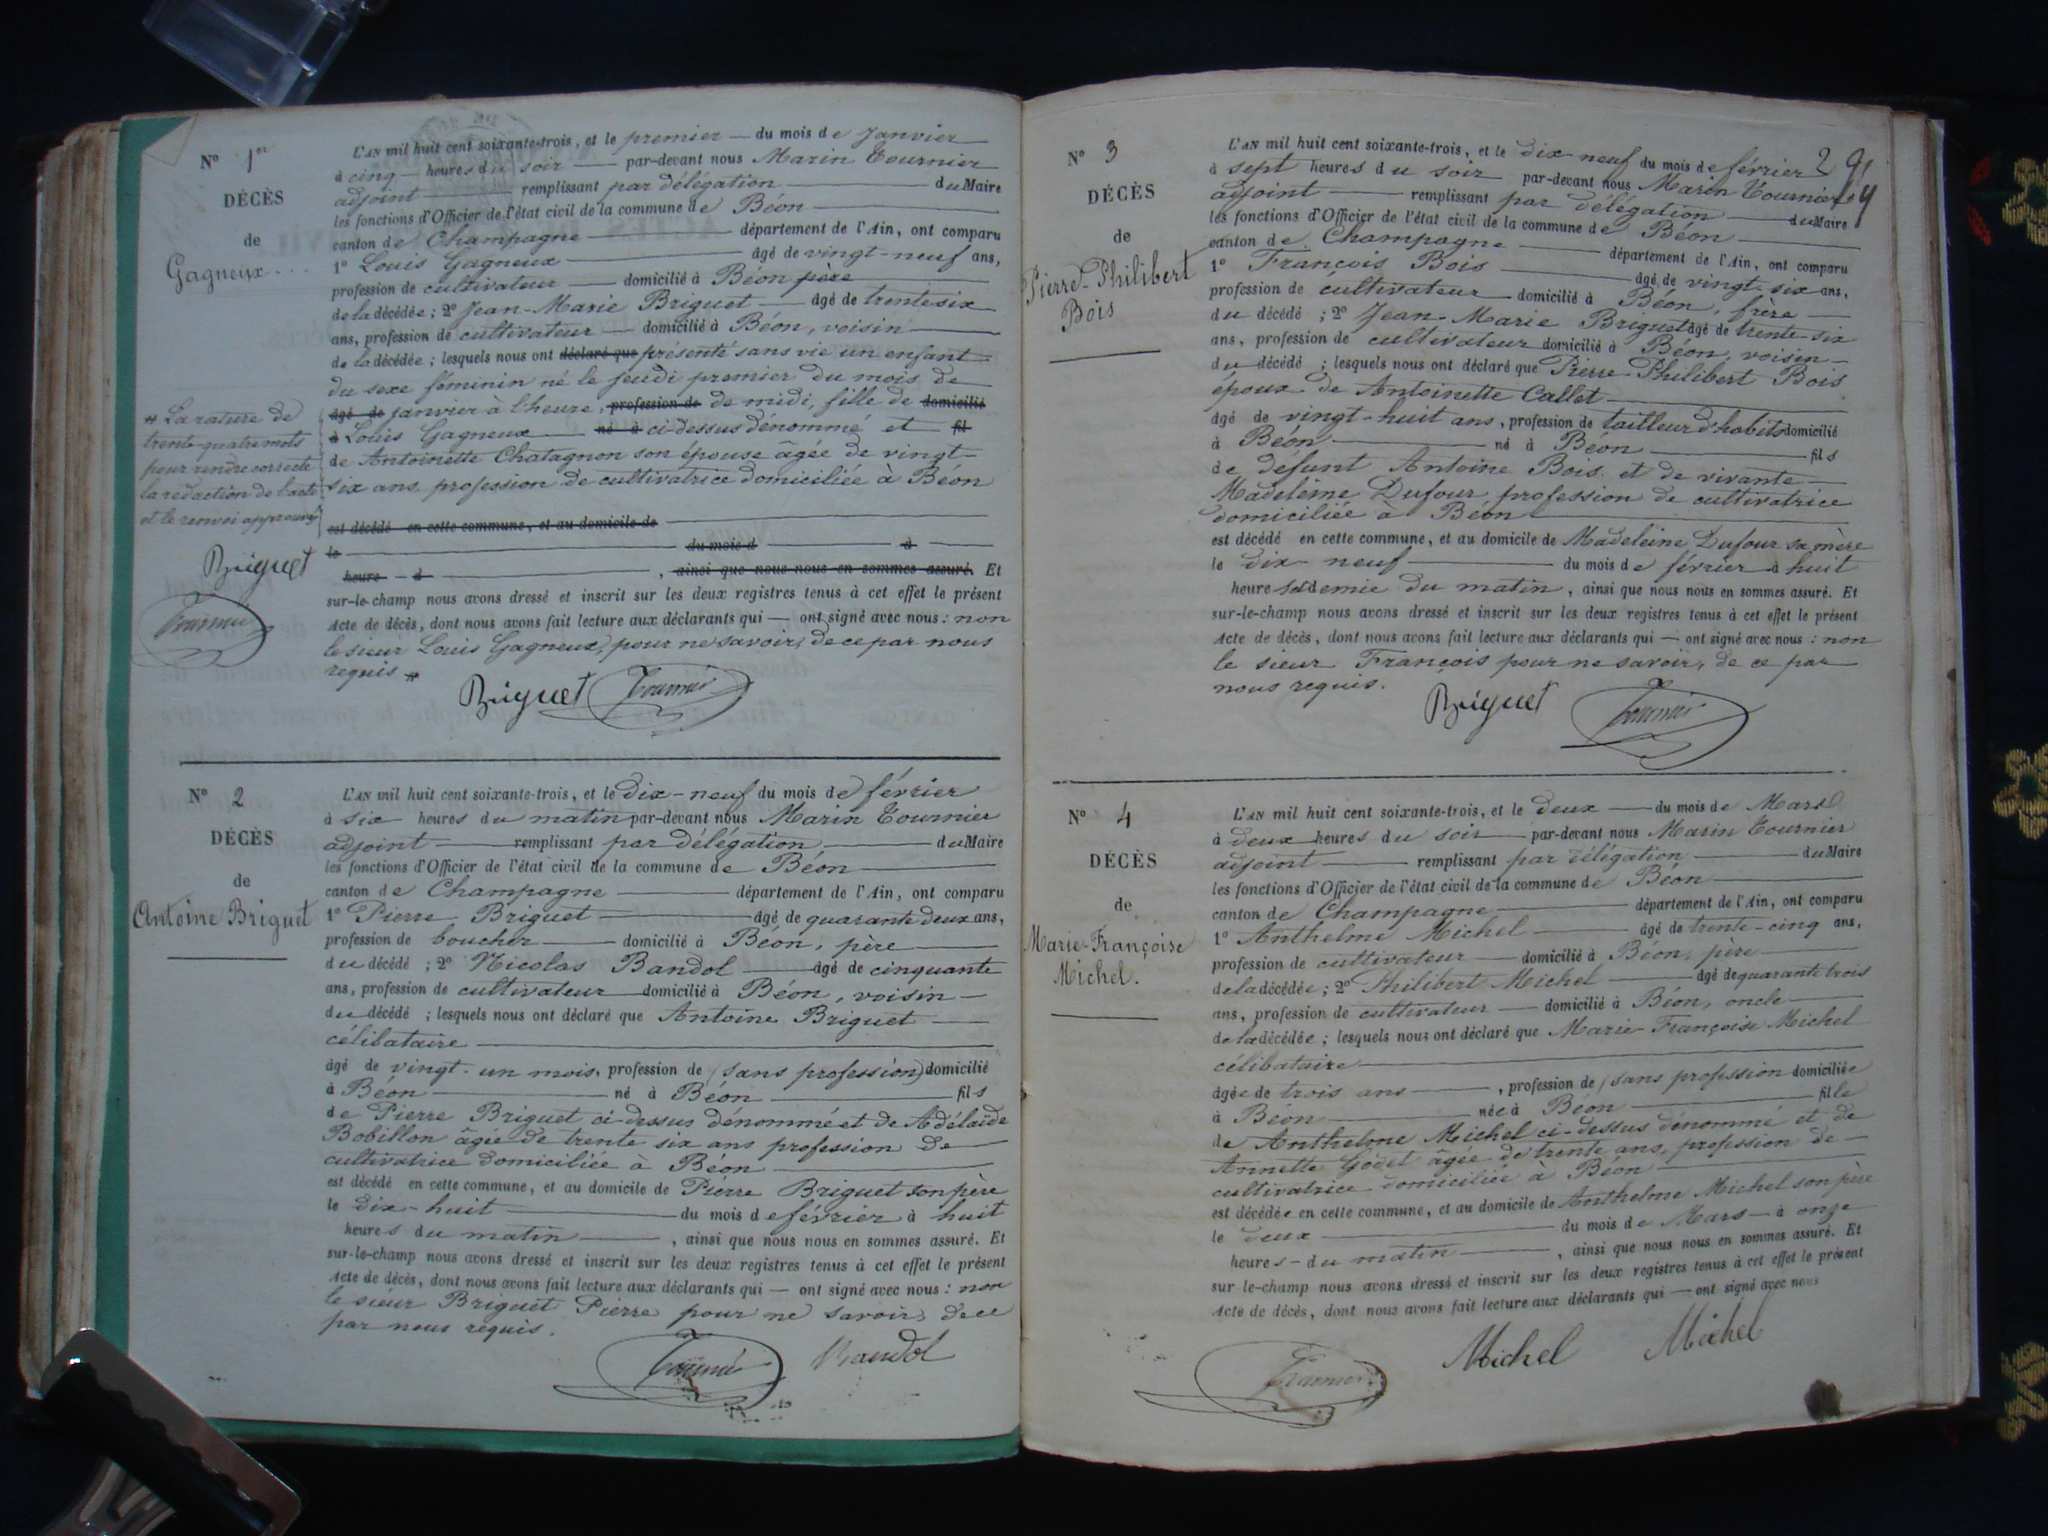 N° 1er
DÉCÈS
de
Gagneux
L'AN mil huit cent soixante-trois, et le premier — du mois de Janvier
à cinq — heures du soir — par-devant nous Marin Tournier
adjoint — remplissant par délégation — du Maire
les fonctions d'Officier de l'état civil de la commune de Béon
canton de Champagne — département de l'Ain, ont comparu
1° Louis Gagneux — âgé de vingt-neuf ans,
profession de cultivateur — domicilié à Béon père
de la décédée ; 2° Jean-Marie Briguet — âgé de trente six
ans, profession de cultivateur — domicilié à Béon, voisin
de la décédée ; lesquels nous ont déclaré que présenté sans vie un enfant
du sexe féminin né le jeudi premier du mois de
âgé de janvier à l'heure, profession de de midi, fille de domicilié
à Louis Gagneux — né à ci-dessus dénommé et fil
de Antoinette Chatagnon son épouse âgée de vingt-
six ans profession de cultivatrice domiciliée à Béon
est décédé en cette commune, et au domicile de
le — du mois d — à
heure — d — , ainsi que nous nous en sommes assuré. Et
sur-le-champ nous avons dressé et inscrit sur les deux registres tenus à cet effet le présent
Acte de décès, dont nous avons fait lecture aux déclarants qui — ont signé avec nous : non
le sieur Louis Gagneux, pour ne savoir, de ce par nous
requis #
# La rature de
trente-quatre mots
pour rendre correcte
la rédaction de l'acte
et le renvoi approuvé
Briguet
Tournier
Briguet Tournier
N° 2
DÉCÈS
de
Antoine Briguet
L'AN mil huit cent soixante-trois, et le dix-neuf du mois de février
à six heures du matin par-devant nous Marin Tournier
adjoint — remplissant par délégation — du Maire
les fonctions d'Officier de l'état civil de la commune de Béon
canton de Champagne — département de l'Ain, ont comparu
1° Pierre Briguet — âgé de quarante deux ans,
profession de boucher — domicilié à Béon, père
du décédé ; 2° Nicolas Bandol — âgé de cinquante
ans, profession de cultivateur domicilié à Béon, voisin
du décédé ; lesquels nous ont déclaré que Antoine Briguet
célibataire
âgé de vingt-un mois, profession de (sans profession) domicilié
à Béon — né à Béon — fils
de Pierre Briguet ci-dessus dénommé et de Adélaïde
Bobillon âgée de trente six ans profession de
cultivatrice domiciliée à Béon
est décédé en cette commune, et au domicile de Pierre Briguet son père
le dix-huit — du mois de février à huit
heures du matin — , ainsi que nous nous en sommes assuré. Et
sur-le-champ nous avons dressé et inscrit sur les deux registres tenus à cet effet le présent
Acte de décès, dont nous avons fait lecture aux déclarants qui — ont signé avec nous : non
le sieur Briguet Pierre pour ne savoir, de ce
par nous requis.
Tournier Bandol
N° 3
DÉCÈS
de
Pierre-Philibert
Bois
L'AN mil huit cent soixante-trois, et le dix-neuf du mois de février
à sept heures du soir par-devant nous Marin Tournier
adjoint — remplissant par délégation — du Maire
les fonctions d'Officier de l'état civil de la commune de Béon
canton de Champagne — département de l'Ain, ont comparu
1° François Bois — âgé de vingt-six ans,
profession de cultivateur domicilié à Béon, frère
du décédé ; 2° Jean-Marie Briguet âgé de trente-six
ans, profession de cultivateur domicilié à Béon, voisin
du décédé ; lesquels nous ont déclaré que Pierre Philibert Bois
époux de Antoinette Callet
âgé de vingt-huit ans, profession de tailleur d'habits domicilié
à Béon — né à Béon — fils
de défunt Antoine Bois et de vivante
Madeleine Dufour profession de cultivatrice
domiciliée à Béon
est décédé en cette commune, et au domicile de Madeleine Dufour sa mère
le dix neuf — du mois de février à huit
heures et demie du matin, ainsi que nous nous en sommes assuré. Et
sur-le-champ nous avons dressé et inscrit sur les deux registres tenus à cet effet le présent
Acte de décès, dont nous avons fait lecture aux déclarants qui — ont signé avec nous : non
le sieur François pour ne savoir, de ce par
nous requis.
Briguet Tournier
N° 4
DÉCÈS
de
Marie-Françoise
Michel.
L'AN mil huit cent soixante-trois, et le deux — du mois de Mars
à deux heures du soir — par-devant nous Marin Tournier
adjoint — remplissant par délégation — du Maire
les fonctions d'Officier de l'état civil de la commune de Béon
canton de Champagne — département de l'Ain, ont comparu
1° Anthelme Michel — âgé de trente-cinq ans,
profession de cultivateur — domicilié à Béon, père
de la décédée ; 2° Philibert Michel — âgé de quarante trois
ans, profession de cultivateur — domicilié à Béon, oncle
de la décédée ; lesquels nous ont déclaré que Marie Françoise Michel
célibataire
âgée de trois ans — , profession de (sans profession domiciliée
à Béon — née à Béon — fille
de Anthelme Michel ci-dessus dénommé et de
Annette Godet âgée de trente ans, profession de
cultivatrice domiciliée à Béon
est décédée en cette commune, et au domicile de Anthelme Michel son père
le deux — du mois de Mars — à onze
heures du matin — , ainsi que nous nous en sommes assuré. Et
sur-le-champ nous avons dressé et inscrit sur les deux registres tenus à cet effet le présent
Acte de décès, dont nous avons fait lecture aux déclarants qui — ont signé avec nous
Michel Michel
Tournier